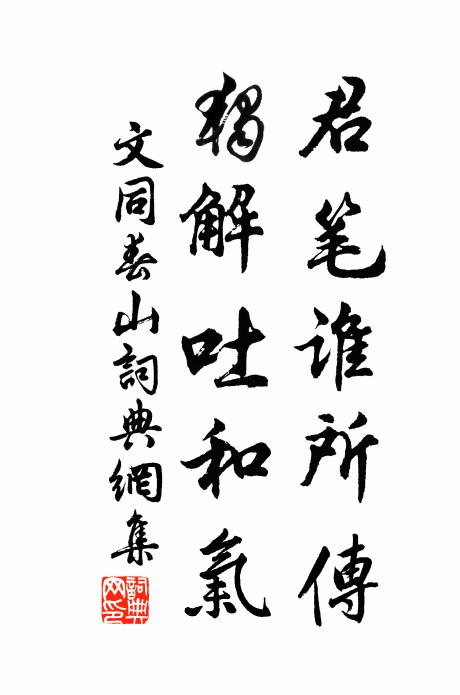 君笔谁所傳
獨解吐和氣
文同春山詞典網集
詞典网印